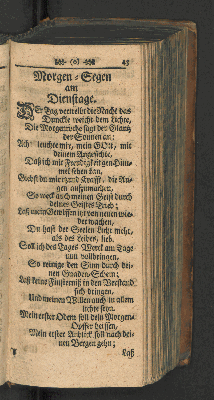 (o) 43
Morgen-Segen
am
Dienstage.
Der Tag vertreibt die Nacht das
Dunckle weicht dem Lichte,
Die Morgenröthe sagt der Glantz
der Sonnen an;
Ach leuchte mir, mein GOtt, mit
deinem Angesichte,
Daß ich mit Freudigkeit gen Himmel
sehen kan,
Giebst du mir itzund Krafft, die Augen
aufzumachen,
So weck auch meinen Geist durch
deines Geistes Trieb;
Laß mein Gewissen itzt von neuen wieder
wachen,
Du hast der Seelen Licht mehr,
als des Leibes, lieb.
Soll ich des Tages Werck am Tage
nun vollbringen,
So reinige den Sinn durch deinen
Gnaden-Schein;
Laß keine Finsterniß in den Verstand
sich dringen,
Und meinen Willen auch in allem
lichte seyn.
Mein erster Odem soll dein Morgen-
Opffer heissen,
Mein erster Anblick soll nach deinen
Bergen gehn;
Laß